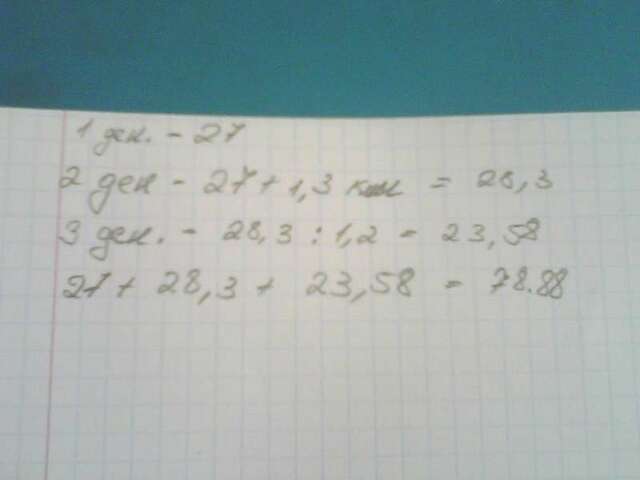 1 ден. - 27
2 ден - 27 + 1,3 км = 28,3
3 ден. - 28,3 : 1,2 = 23,58
27 + 28,3 + 23,58 = 78.88